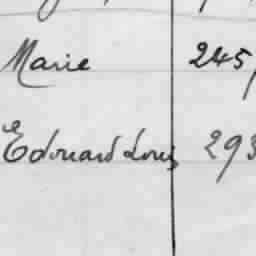 Marie 245
Edouard Louis 293